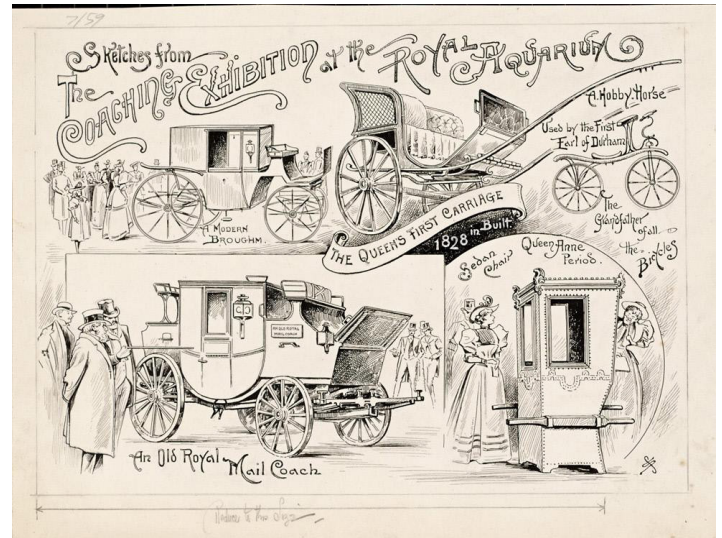 7/59
Sketches from
The COACHING EXHIBITION at the ROYAL AQUARIUM
A Hobby-Horse
Used by the First
Earl of Durham
The
Grandfather
of all
the Bicycles
A MODERN
BROUGHM.
THE QUEEN'S FIRST CARRIAGE
1828 in Built.
Sedan
Chair
Queen Anne
Period.
AN OLD ROYAL
MAIL COACH
An Old Royal
Mail Coach
Reduce to this Size